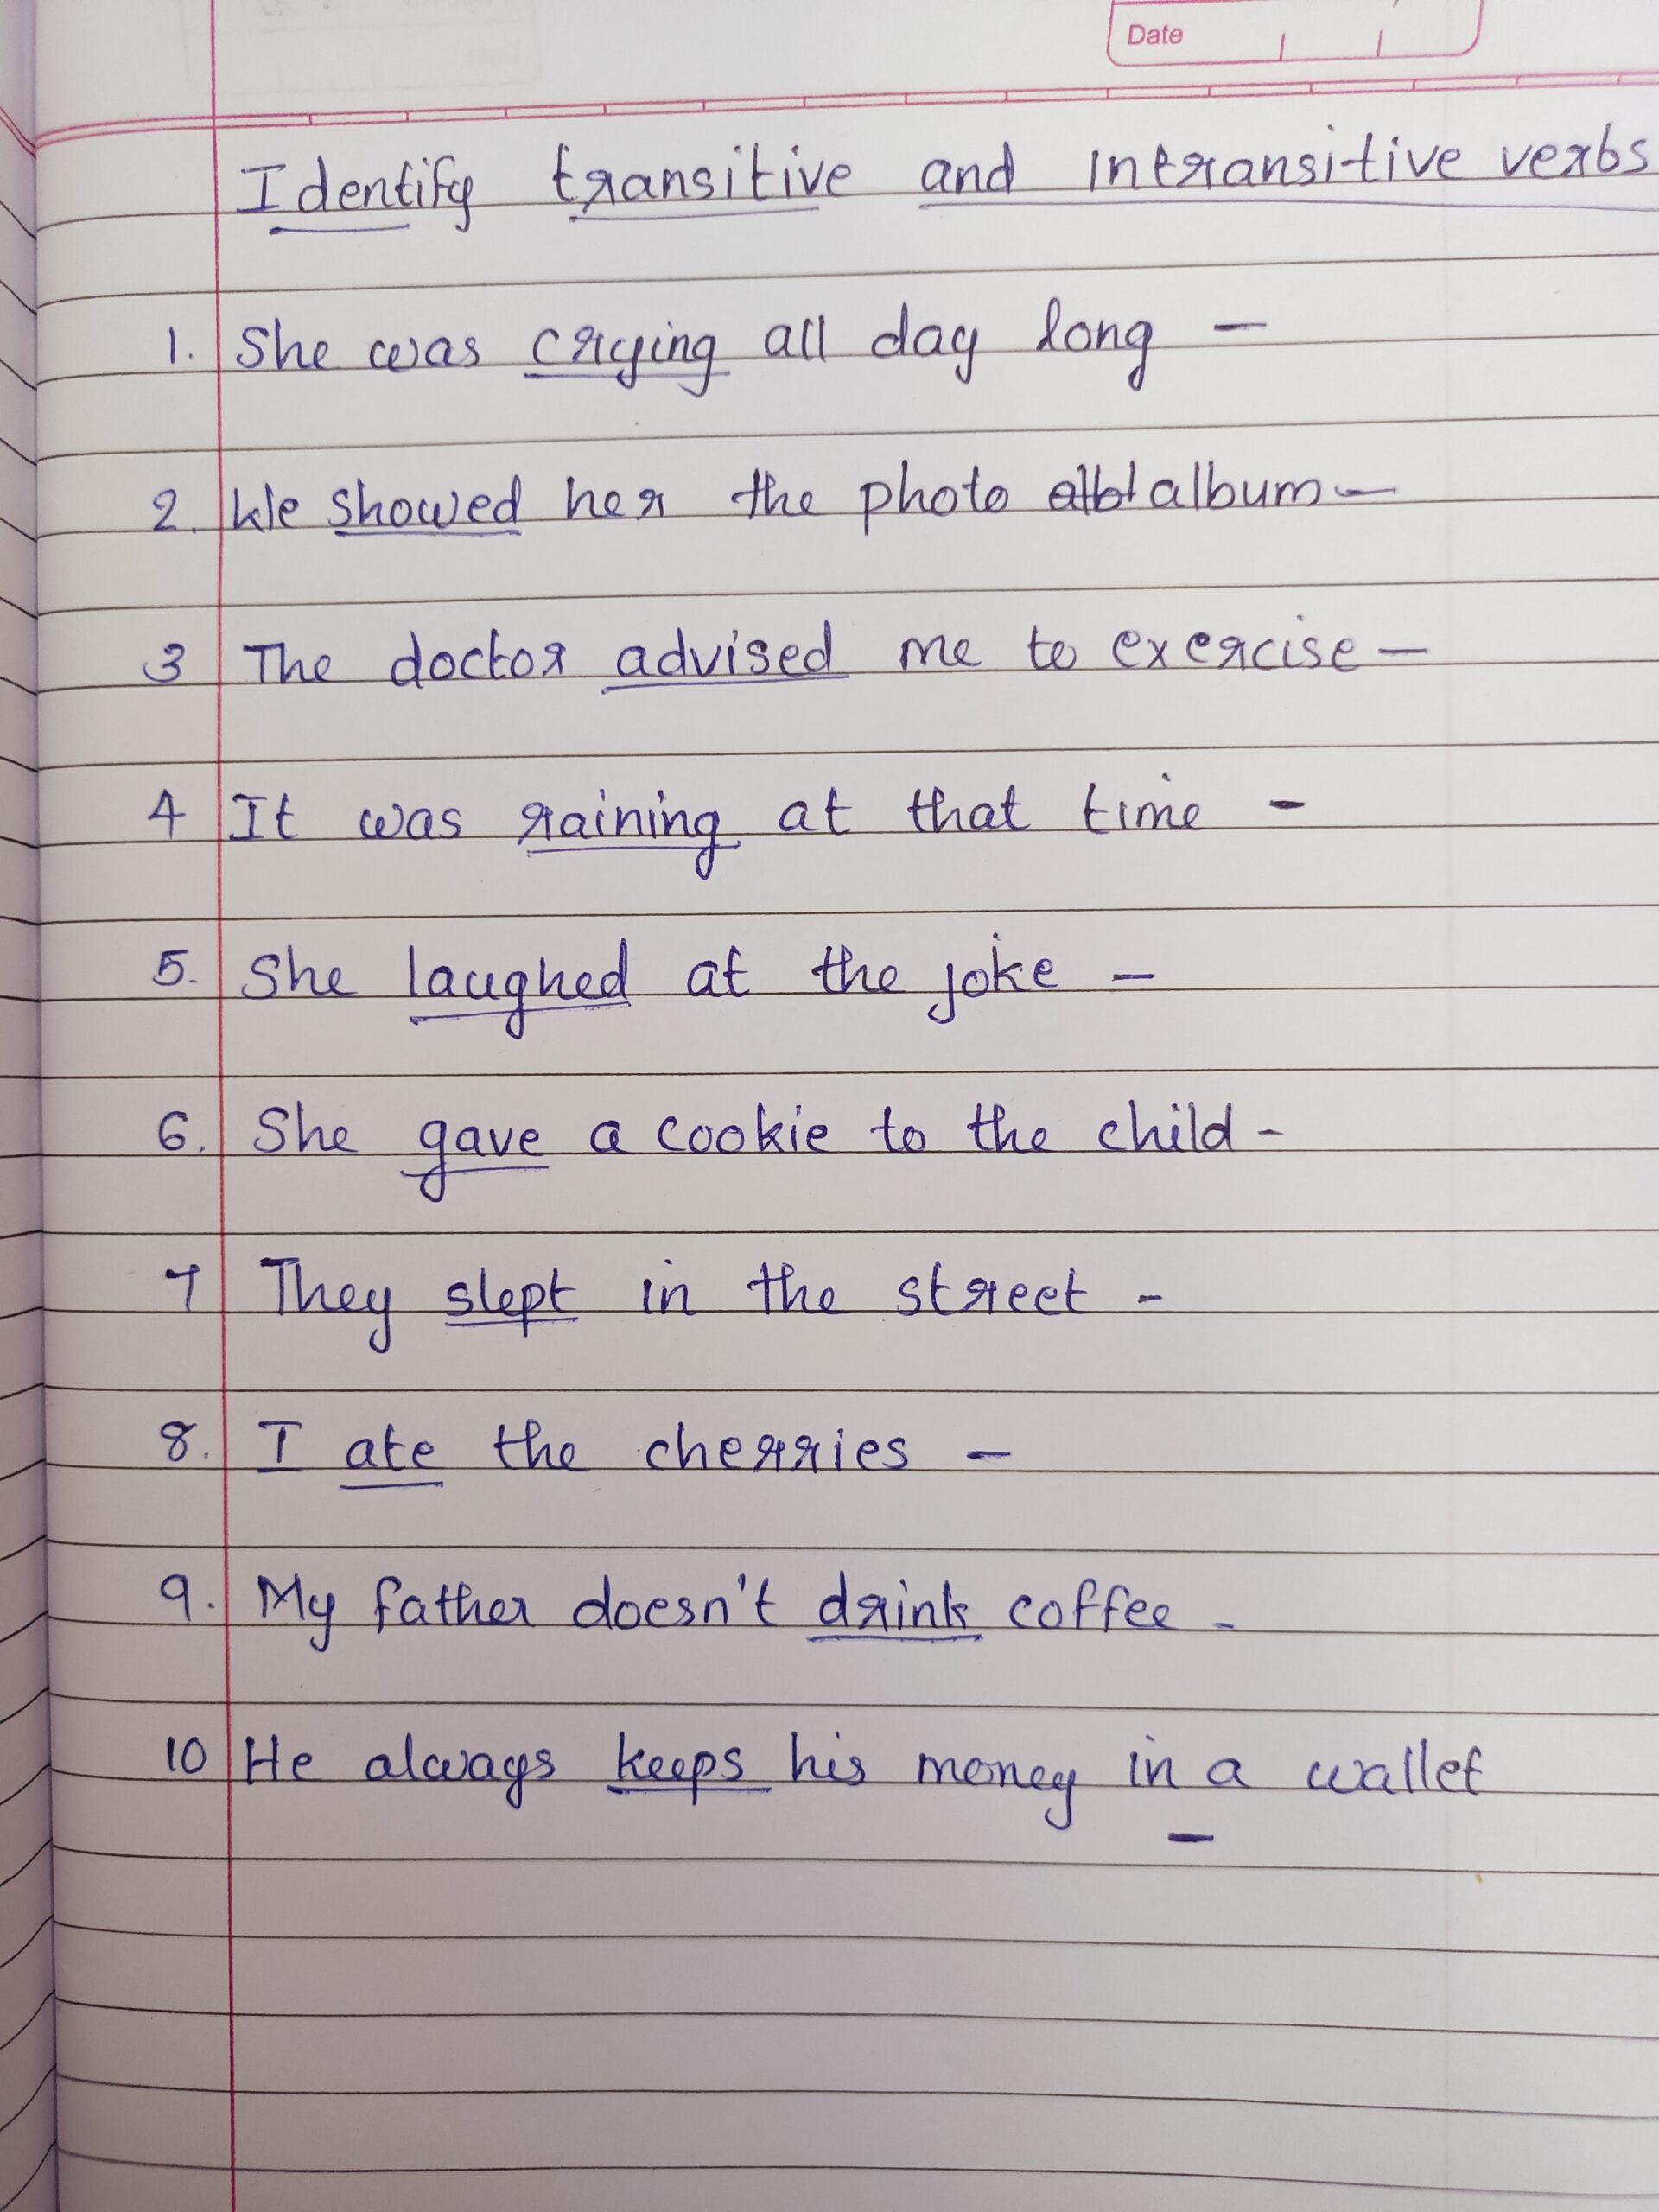 Date
Identify transitive and intransitive verbs
1. She was crying all day long –
2. We showed her the photo album –
3 The doctor advised me to exercise –
4 It was raining at that time –
5. She laughed at the joke –
6. She gave a cookie to the child –
7 They slept in the street –
8. I ate the cherries –
9. My father doesn't drink coffee –
10 He always keeps his money in a wallet
–